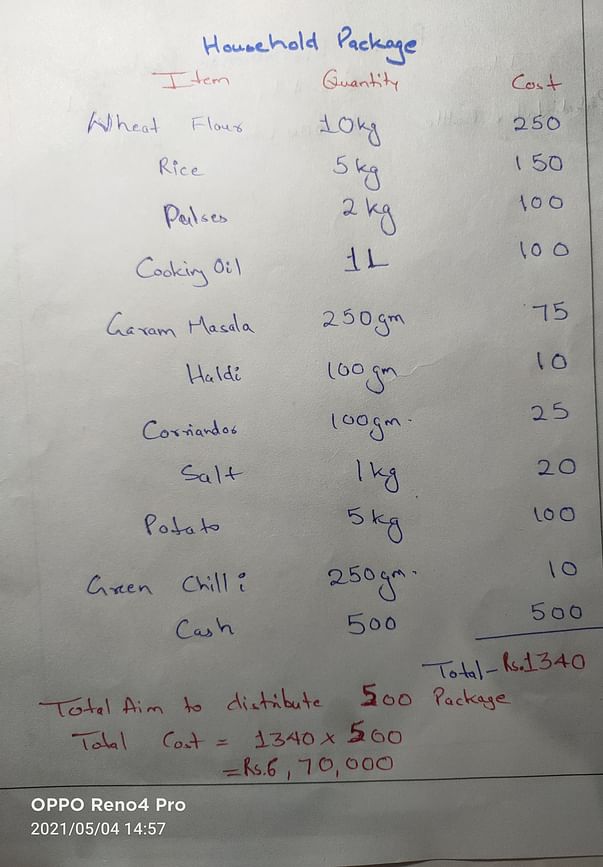 Household Package
Item Quantity Cost
Wheat Flour 10kg 250
Rice 5kg 150
Pulses 2kg 100
Cooking Oil 1L 100
Garam Masala 250gm 75
Haldi 100gm 10
Corriandor 100gm. 25
Salt 1kg 20
Potato 5kg 100
Green Chilli 250gm. 10
Cash 500 500
Total - Rs.1340
Total Aim to distribute 500 Package
Total Cost = 1340 x 500
= Rs.6,70,000
OPPO Reno4 Pro
2021/05/04 14:57